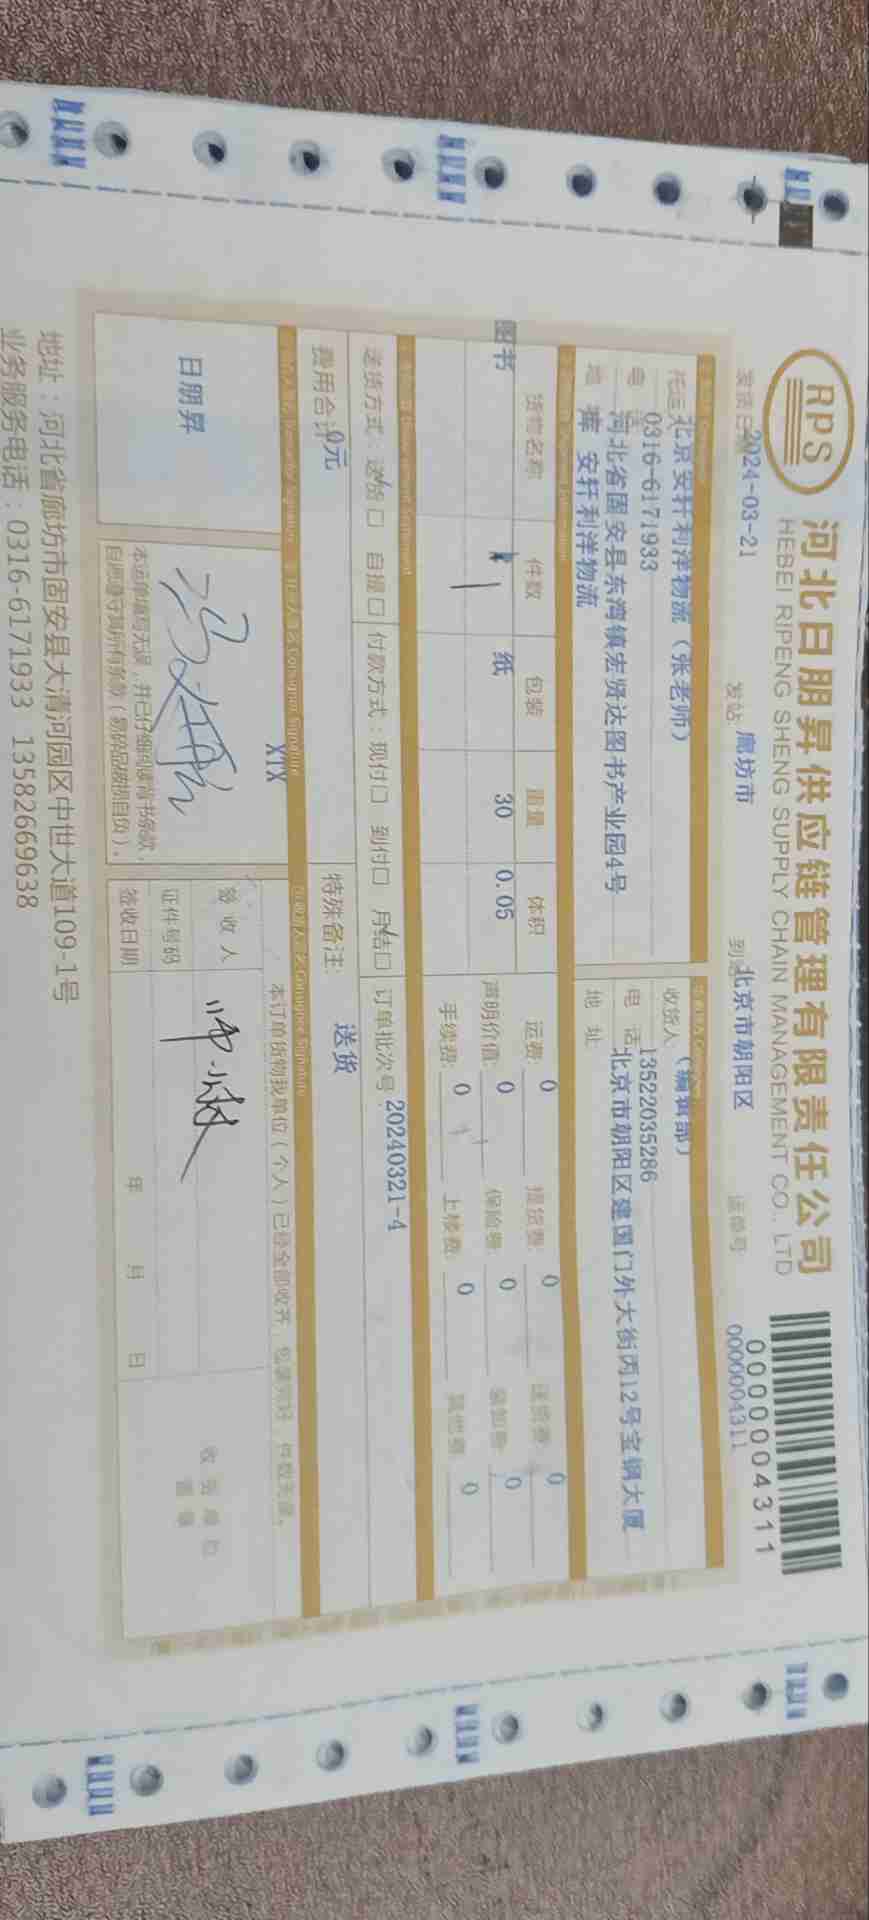 RPS
河北日朋昇供应链管理有限责任公司
HEBEI RIPENG SHENG SUPPLY CHAIN MANAGEMENT CO., LTD
0000004311
发货日期 2024-03-21 发站 廊坊市 到站 北京市朝阳区 运单号 0000004311
托运人 北京安轩利洋物流（张老师）
电话 0316-6171933
河北省固安县东湾镇宏贤达图书产业园4号
库 安轩利洋物流
收货人 （编辑部）
电话 13522035286
地址 北京市朝阳区建国门外大街丙12号宝钢大厦
货物名称 件数 包装 重量 体积
图书 1 纸 30 0.05
运费: 0 提货费: 0 送货费: 0
声明价值: 0 保险费: 0 装卸费: 0
手续费: 0 上楼费: 0 其他费: 0
送货方式: 送货 自提 付款方式: 现付 到付 月结 订单批次号: 20240321-4
费用合计: 0元 特殊备注: 送货
日朋昇
XTX
本运单填写无误，并已仔细阅读背书条款，
自愿遵守其所有条款（易碎品破损自负）。
本订单货物我单位（个人）已经全部收齐，包装完好，件数无误。
签收人
证件号码
签收日期 年 月 日
收货单位
盖章
地址：河北省廊坊市固安县大清河园区中世大道109-1号
业务服务电话：0316-6171933 13582669638